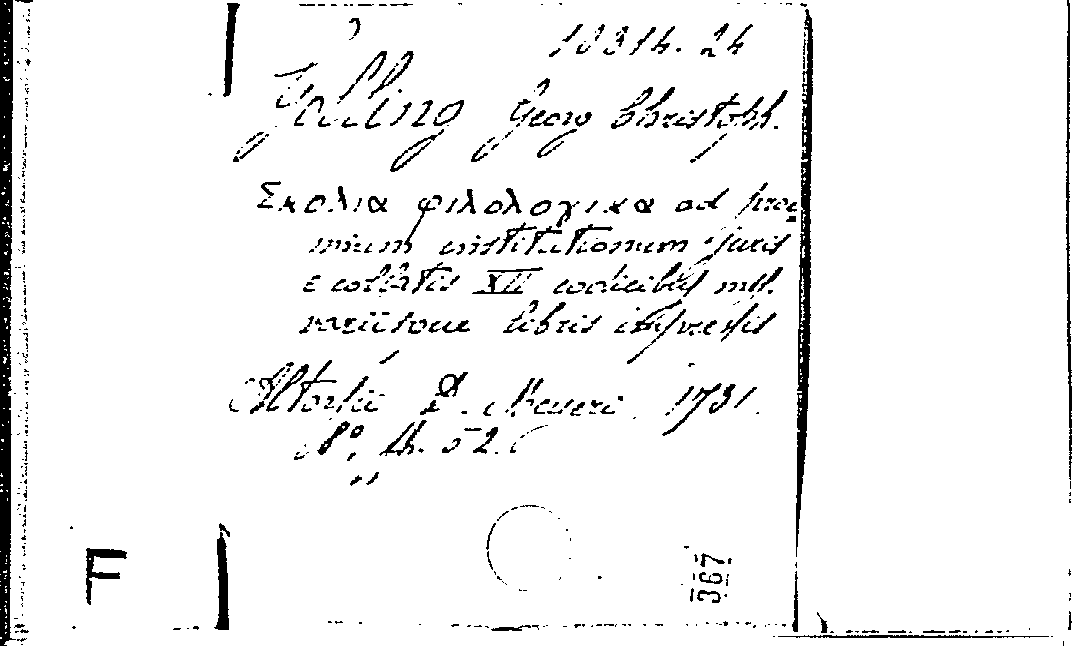 10314. 24
Golling Georg Christoph.
Σκολια φιλολογικα ad prooe
mium institutionum juris
e collatis XII codicibus mss.
variisque libris impressis
Altorfii D. Meyeri 1731.
N°. 4. 52.
367
F